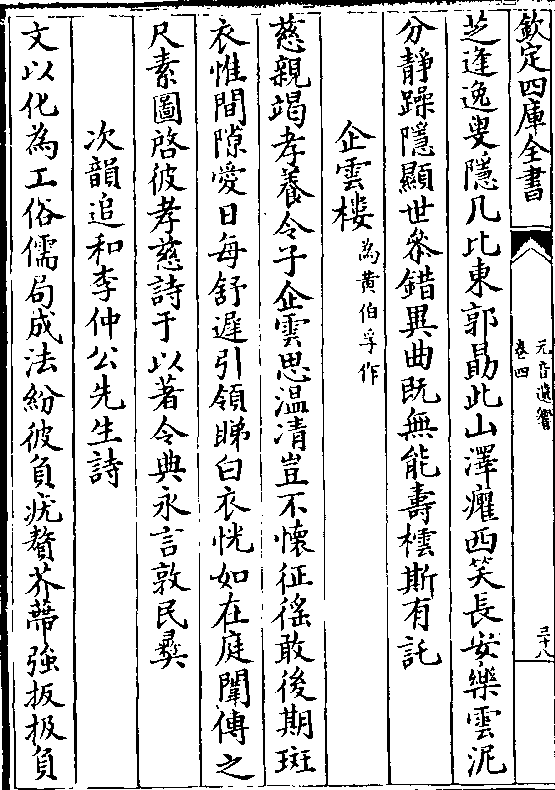 欽定四庫全書
元音遺響
卷四
三十八
芝逢逸叟隱几比東郭勗此山澤癯西笑長安樂雲泥
分靜躁隱顯世參錯異曲既無能壽樗斯有託
企雲樓為黄伯孚作
慈親竭孝養令子企雲思温凊豈不懷征徭敢後期斑
衣惟間隙愛日每舒遲引領睇白衣恍如在庭闈傳之
尺素圖啓彼孝慈詩于以著令典永言敦民彝
次韻追和李仲公先生詩
文以化為工俗儒局成法紛彼負疣贅芥蔕強扳极負